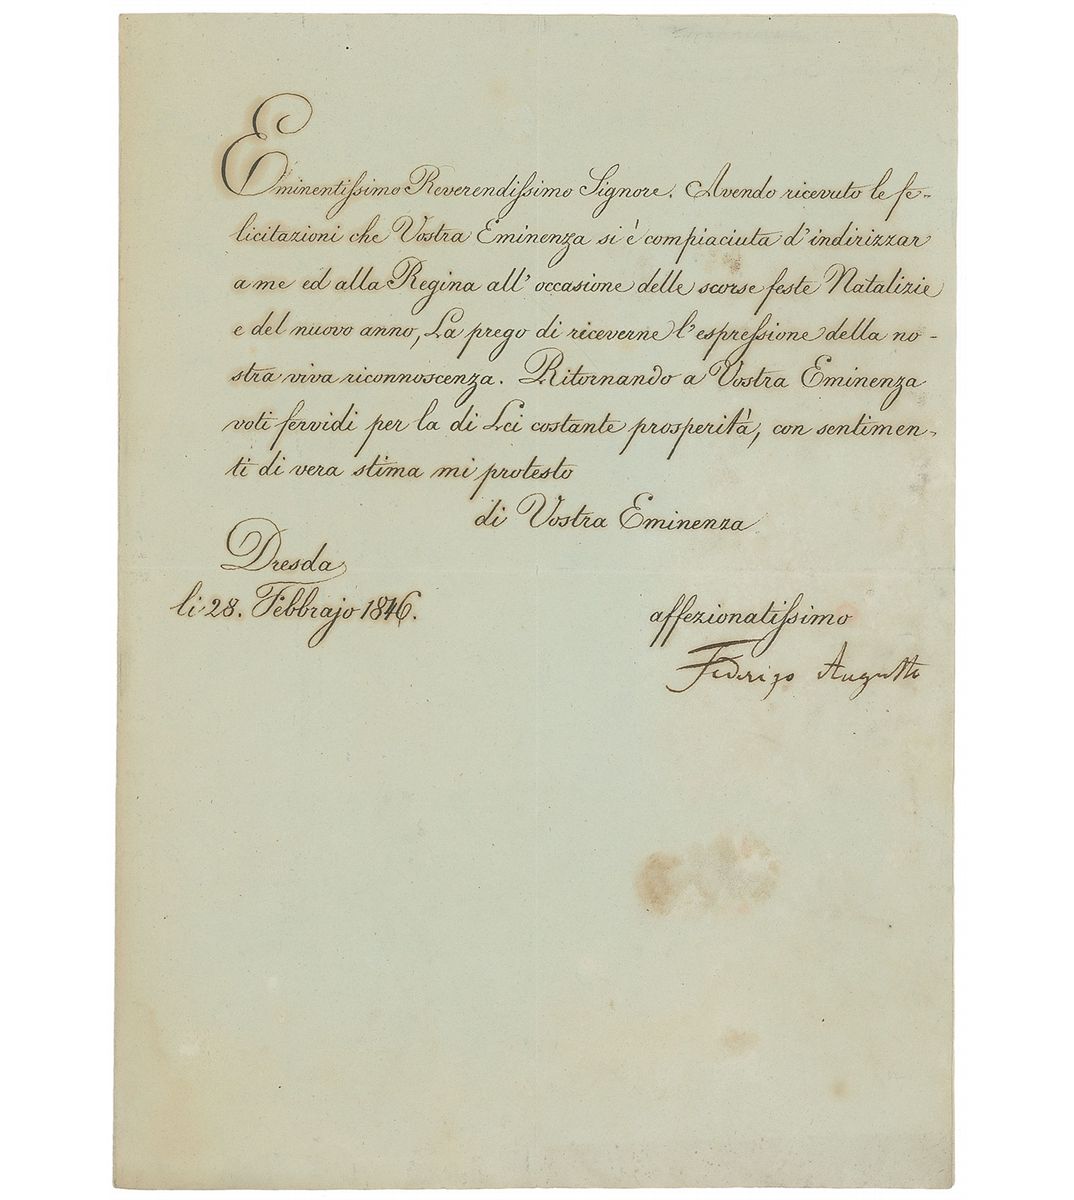 Eminentissimo Reverendissimo Signore. Avendo ricevuto le fe-
licitazioni che Vostra Eminenza si è compiaciuta d'indirizzar
a me ed alla Regina all'occasione delle scorse feste Natalizie
e del nuovo anno, La prego di riceverne l'espressione della no-
stra viva riconnoscenza. Ritornando a Vostra Eminenza
voti fervidi per la di Lei costante prosperità, con sentimen-
ti di vera stima mi protesto
di Vostra Eminenza
Dresda
li 28. Febbrajo 1846.
affezionatissimo
Federigo Augusto